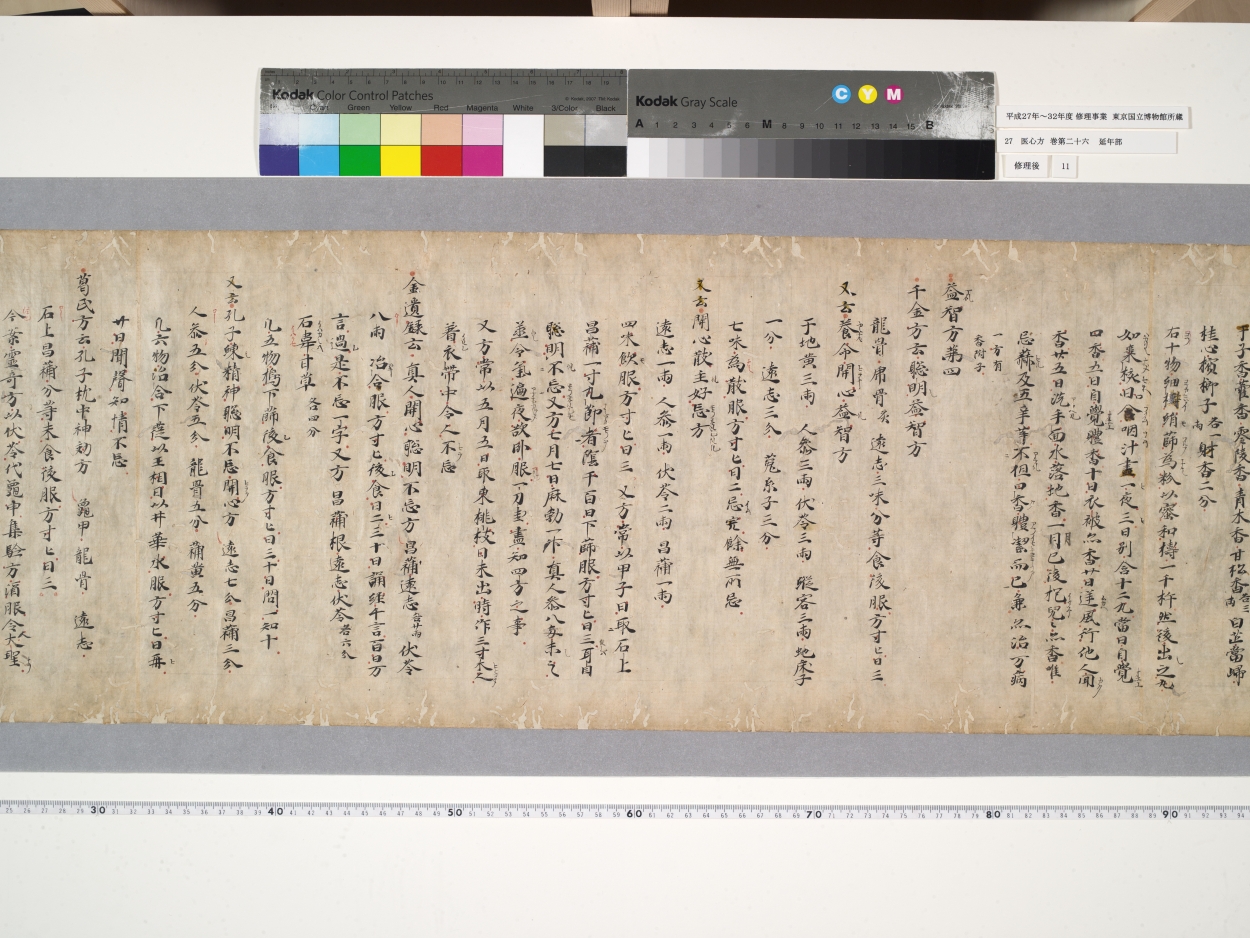 Kodak Color Control Patches
Blue Cyan Green Yellow Red Magenta White 3/Color Black
Kodak Gray Scale
C Y M
A 1 2 3 4 5 6 M 8 9 10 11 12 13 14 15 B
平成27年～32年度 修理事業 東京国立博物館所蔵
27 医心方 巻第二十六 延年部
修理後 11
丁子香藿香零陵香青木香甘松香各三両白芷當歸
桂心檳榔子各一両射香二分
右十物細擣絹篩為粉以蜜和擣一千杵然後出之丸
如棗核口含咽汁晝一夜三日別含十二丸當日自覺
口香五日自覺體香十日衣被亦香廿日逆風行他人聞
香廿五日洗手面水落地香一月已後抱兒亦香唯
忌蒜及五辛等不但口香體潔而已兼亦治万病
一方有
香附子
益智方第四
千金方云聡明益智方
龍骨 虎骨炙 遠志三味分等食後服方寸匕日三
又云養命開心益智方
干地黄三両 人參三両 伏苓三両 蹤容三両 地床子
一分 遠志三分 菟糸子三分
七味為散服方寸匕日二忌宍餘無所忌
又云開心散主好忘方
遠志一両 人參一両 伏苓二両 昌蒲一両
四味飲服方寸匕日三 又方常以甲子日取石上
昌蒲一寸九節者陰干百日下篩服方寸匕日三耳目
聡明不忘又方七月七日麻勃一升真人參八両末之
並令氣遍夜欲臥服一刀圭盡知四方之事
又方常以五月五日取東桃枝日未出時作三寸木人
着衣帶中令人不忘
金遺録云真人開心聡明不忘方 昌蒲遠志各廿両 伏苓
八両 治合服方寸匕後食日二三十日誦経千言百日万
言過是不忘一字又方 昌蒲根遠志伏苓各六分
石韋甘草 各四分
凡五物擣下篩後食服方寸匕日三十日問一知十
又云孔子練精神聡明不忘開心方 遠志七分昌蒲三分
人參五分伏苓五分 龍骨五分 蒲黄五分
凡六物治合下篩以王相日以井華水服方寸匕日再
廿日開聲知情不忘
葛氏方云孔子枕中神効方 龜甲 龍骨 遠志
石上昌蒲分等末食後服方寸匕日三
今案霊奇方以伏苓代龜甲集驗方酒服令大聖
30 40 50 60 70 80 90